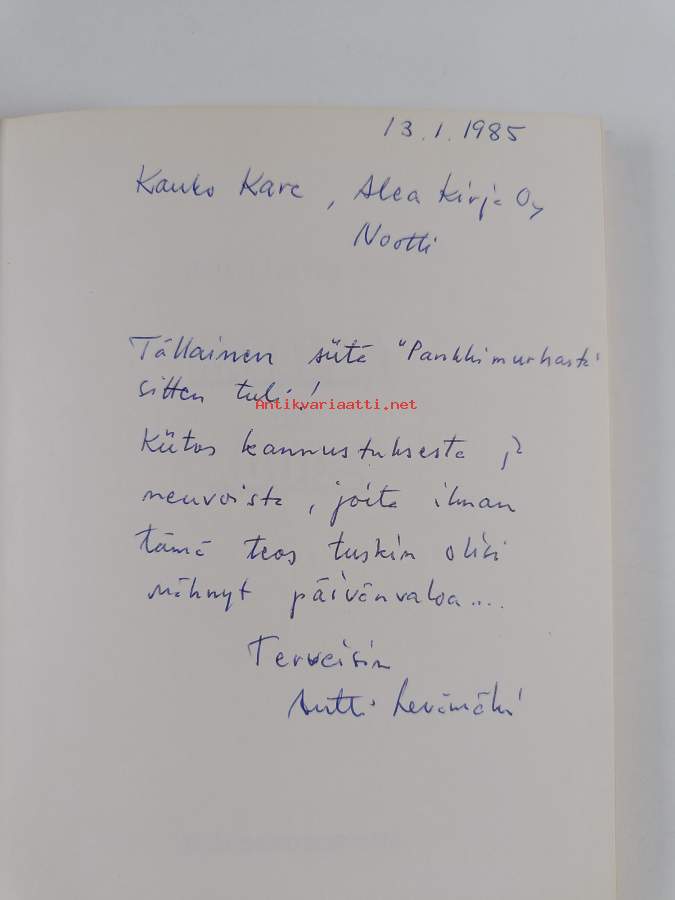 13.1.1985
Kauko Kare, Alea Kirja Oy
Nootti
Tällainen siitä "Pankkimurhasta"
sitten tuli!
Antikvariaatti.net
Kiitos kannustuksesta ja
neuvoista, joita ilman
tämä teos tuskin olisi
nähnyt päivänvaloa....
Terveisin
Antti Levämäki